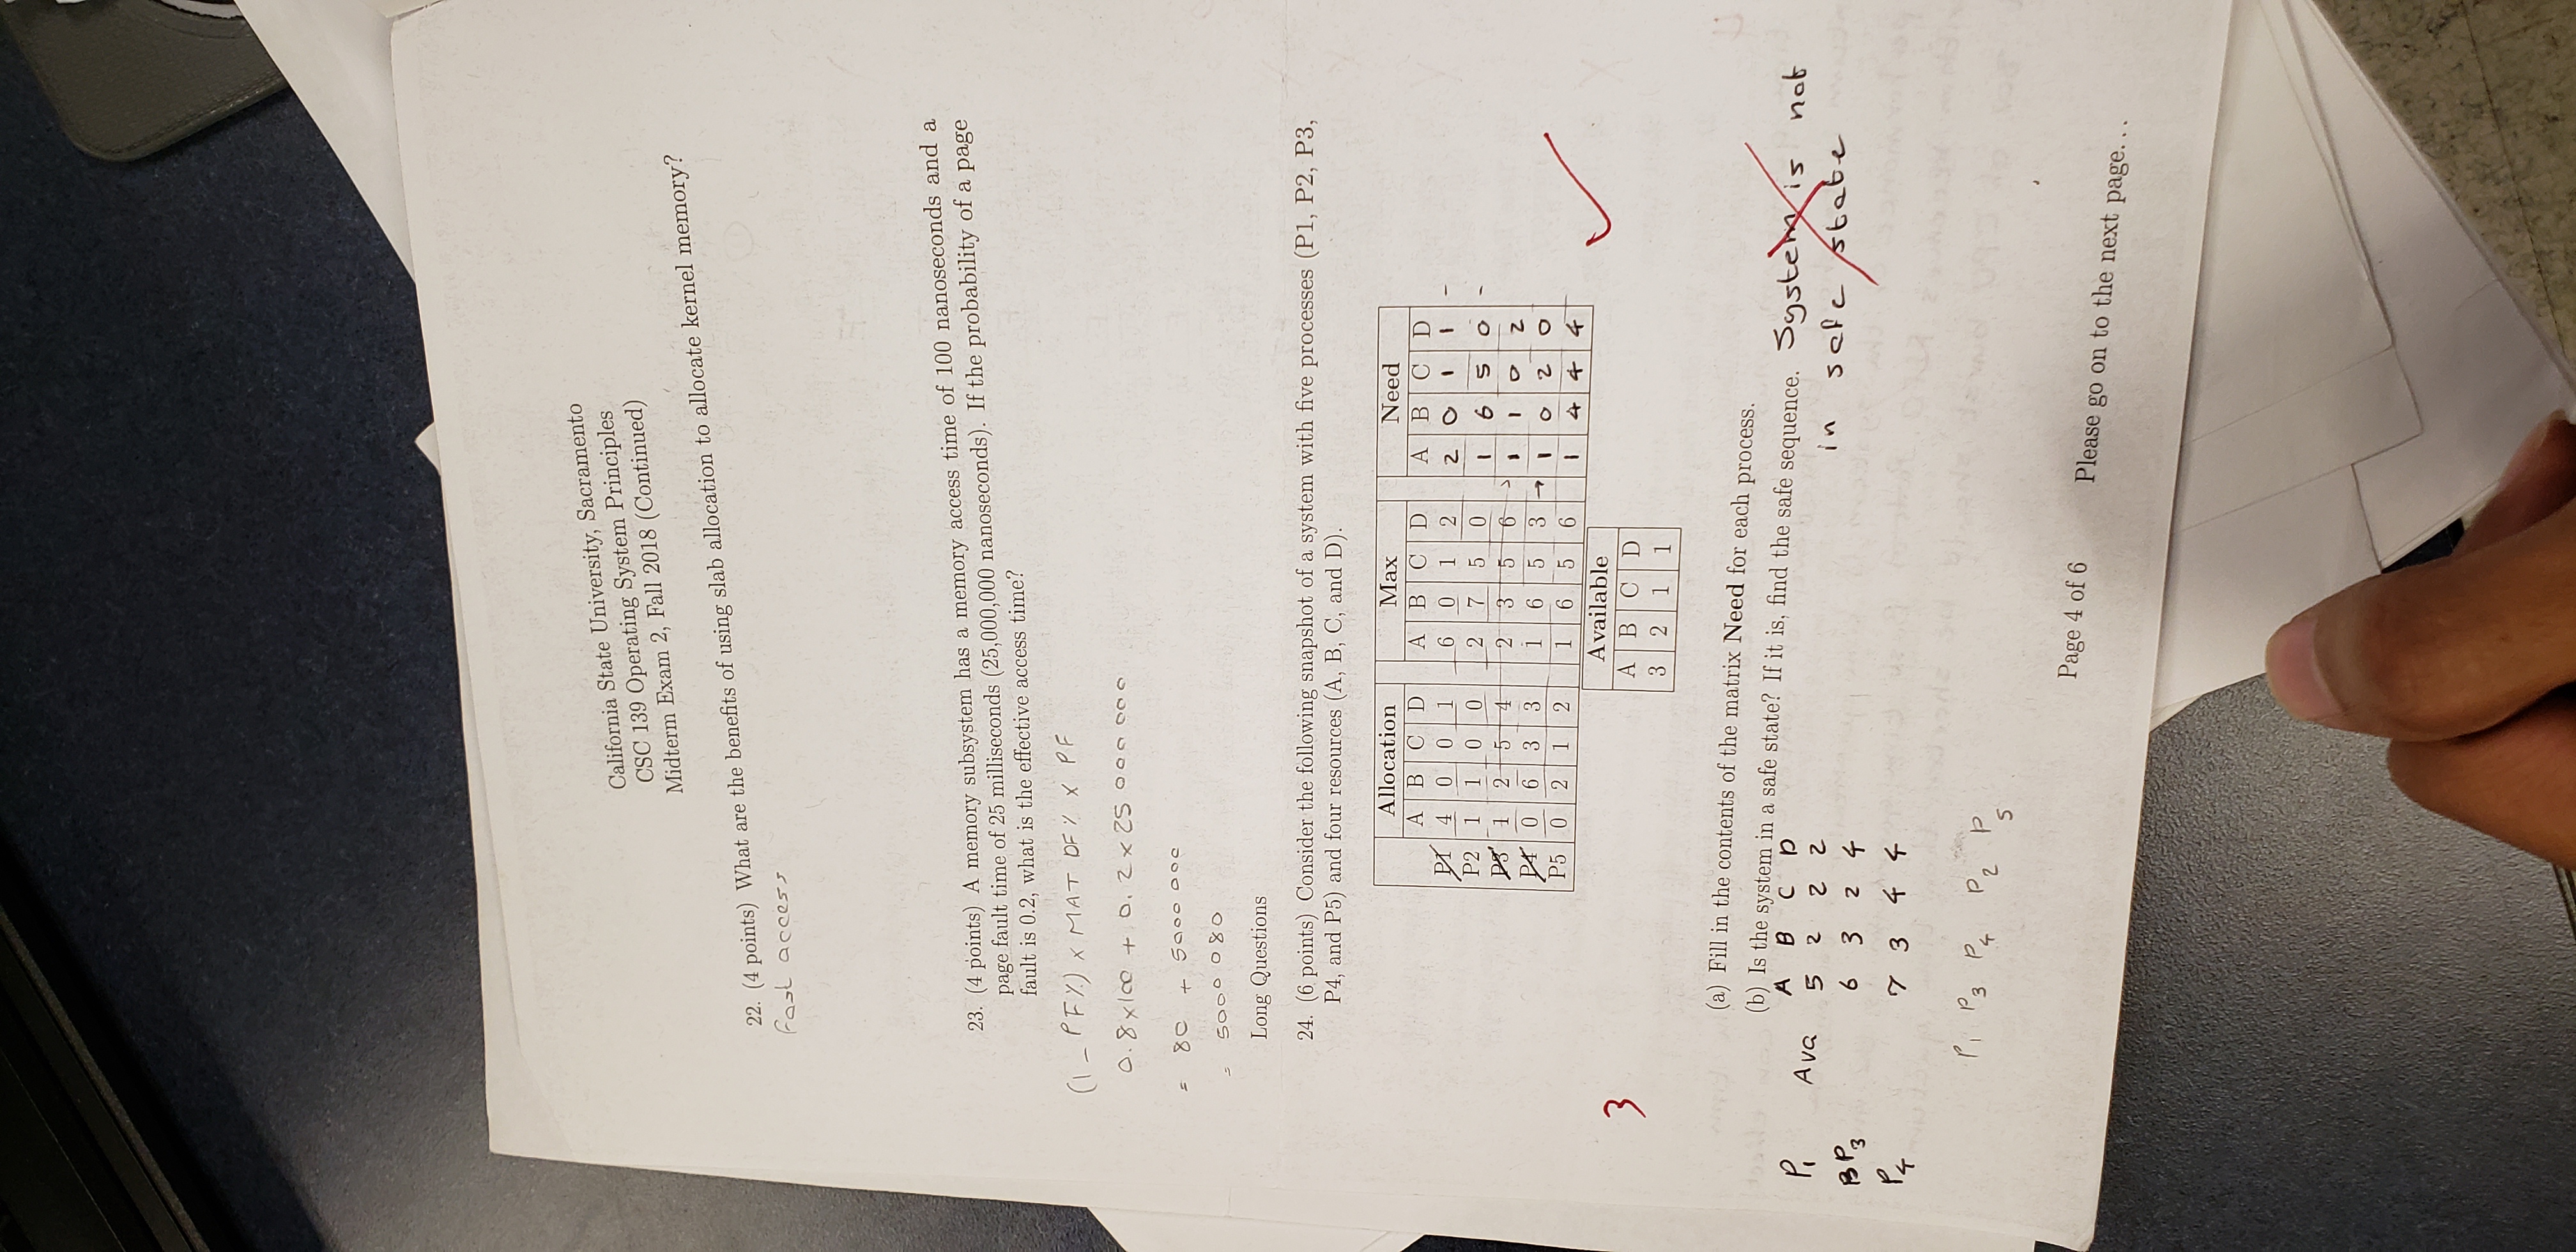 California State University, Sacramento
CSC 139 Operating System Principles
Midterm Exam 2, Fall 2018 (Continued)
22. (4 points) What are the benefits of using slab allocation to allocate kernel memory?
Fast access
23. (4 points) A memory subsystem has a memory access time of 100 nanoseconds and a
page fault time of 25 milliseconds (25,000,000 nanoseconds). If the probability of a page
fault is 0.2, what is the effective access time?
(1 - PF%) x MAT PF% x PF
0.8x100 + 0.2 x 25 000 000
= 80 + 5000 000
= 5000 080
Long Questions
24. (6 points) Consider the following snapshot of a system with five processes (P1, P2, P3,
P4, and P5) and four resources (A, B, C, and D).
Allocation Max Need
A B C D A B C D A B C D
P1 4 0 0 1 6 0 1 2 2 0 1 1 -
P2 1 1 0 0 2 7 5 0 1 6 5 0 -
P3 1 2 5 4 2 3 5 6 > 1 1 0 2
P4 0 6 3 3 1 6 5 3 → 1 0 2 0
P5 0 2 1 2 1 6 5 6 1 4 4 4
3
Available
A B C D
3 2 1 1
(a) Fill in the contents of the matrix Need for each process.
(b) Is the system in a safe state? If it is, find the safe sequence. System is not
in safe state
A B C D
P1 Ava 5 2 2 2
P3 6 3 2 4
P4 7 3 4 4
P1 P3 P4 P2 P5
Page 4 of 6 Please go on to the next page...